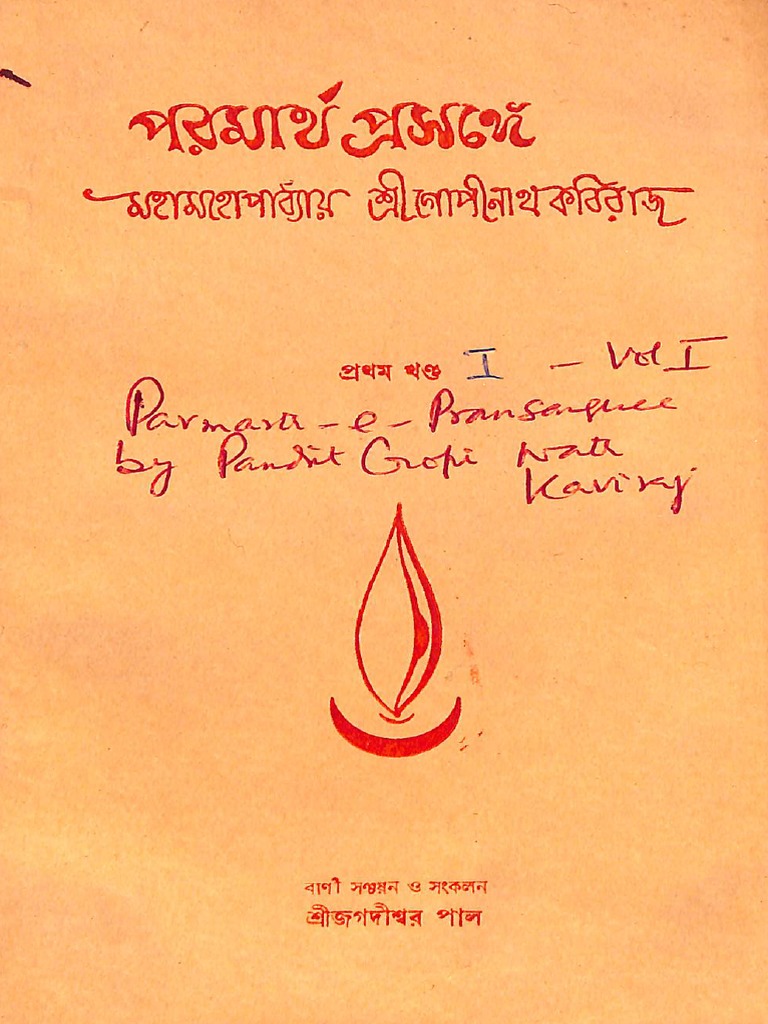 পরমার্থ প্রসঙ্গে
মহামহোপাধ্যায় শ্রীগোপীনাথ কবিরাজ
প্রথম খণ্ড I – Vol I
Parmarth - e - Pransanghee
by Pandit Gopi Nath
Kaviraj
বাণী সঞ্চয়ন ও সংকলন
শ্রীজগদীশ্বর পাল